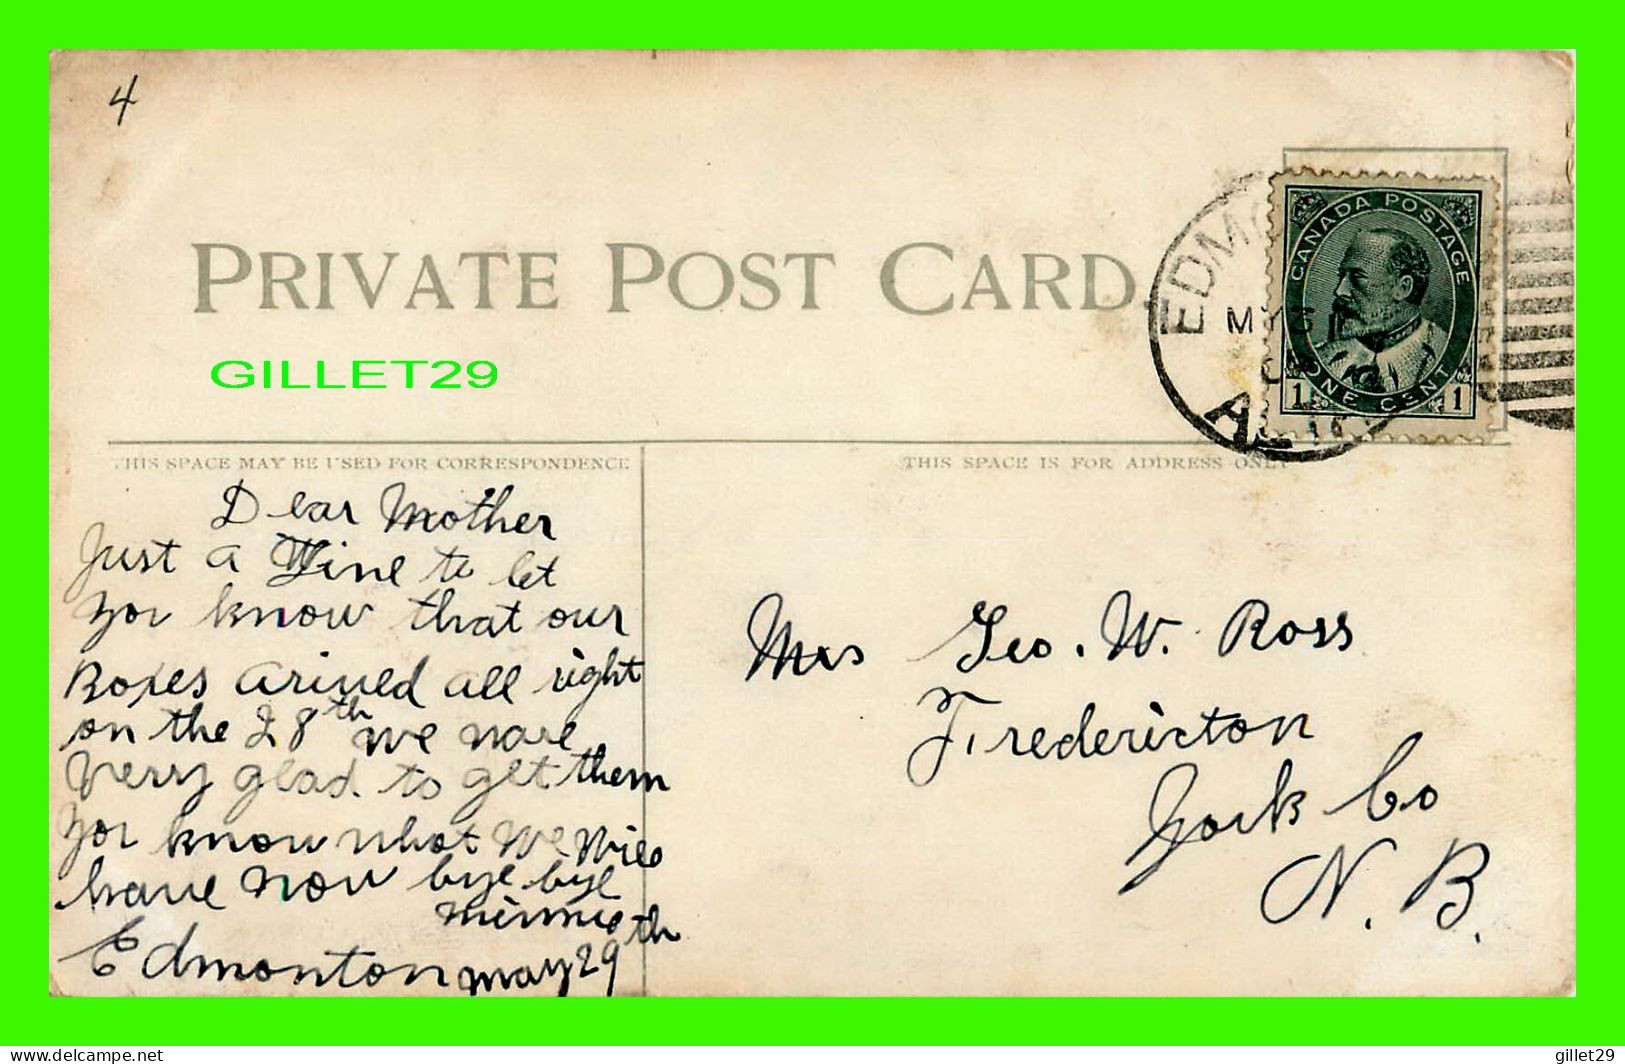 4
PRIVATE POST CARD
GILLET29
CANADA POSTAGE
1 ONE CENT 1
EDMO
MY 3
AL
THIS SPACE MAY BE USED FOR CORRESPONDENCE
THIS SPACE IS FOR ADDRESS ONLY
Dear Mother
Just a Line to let
you know that our
Boxes arived all right
on the 28th we ware
very glad to get them
you know what we
have now bye bye
Minnie
Edmonton May 29th
Mrs Geo. W. Ross
Fredericton
York Co
N. B.
delcampe.net
gillet29